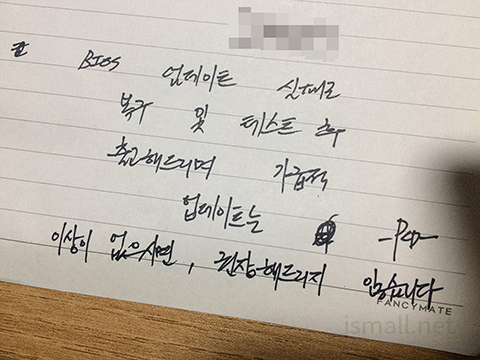 BIOS 업데이트 실패로
복구 및 테스트 후
출고해드리며 가급적
업데이트는
이상이 없으시면, 권장해드리지 않습니다
FANCYMATE
ismall.net